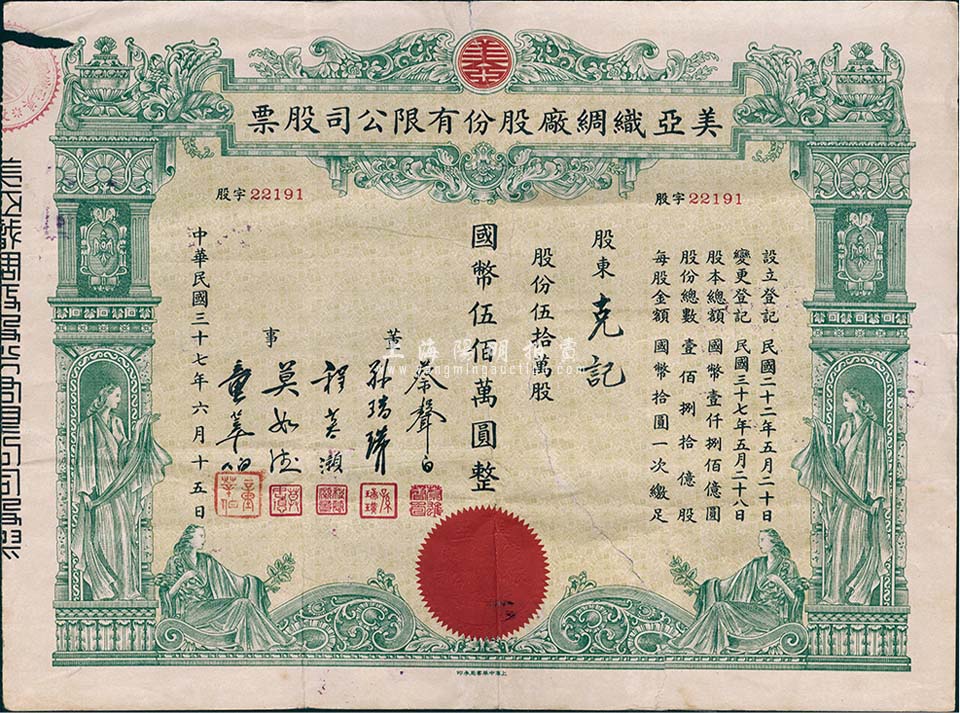 美亞織綢廠股份有限公司股票
股字22191
股字22191
設立登記 民國二十二年五月二十日
變更登記 民國三十七年五月二十八日
股本總額 國幣壹仟捌佰億圓
股份總數 壹佰捌拾億股
每股金額 國幣拾圓一次繳足
股東 克記
股份伍拾萬股
國幣伍佰萬圓整
董事
蔡聲白
孫瑞璜
程菱瀕
莫如德
童莘伯
中華民國三十七年六月十五日
上海陽明拍賣
www.yangmingauction.com
上海中華書局承印